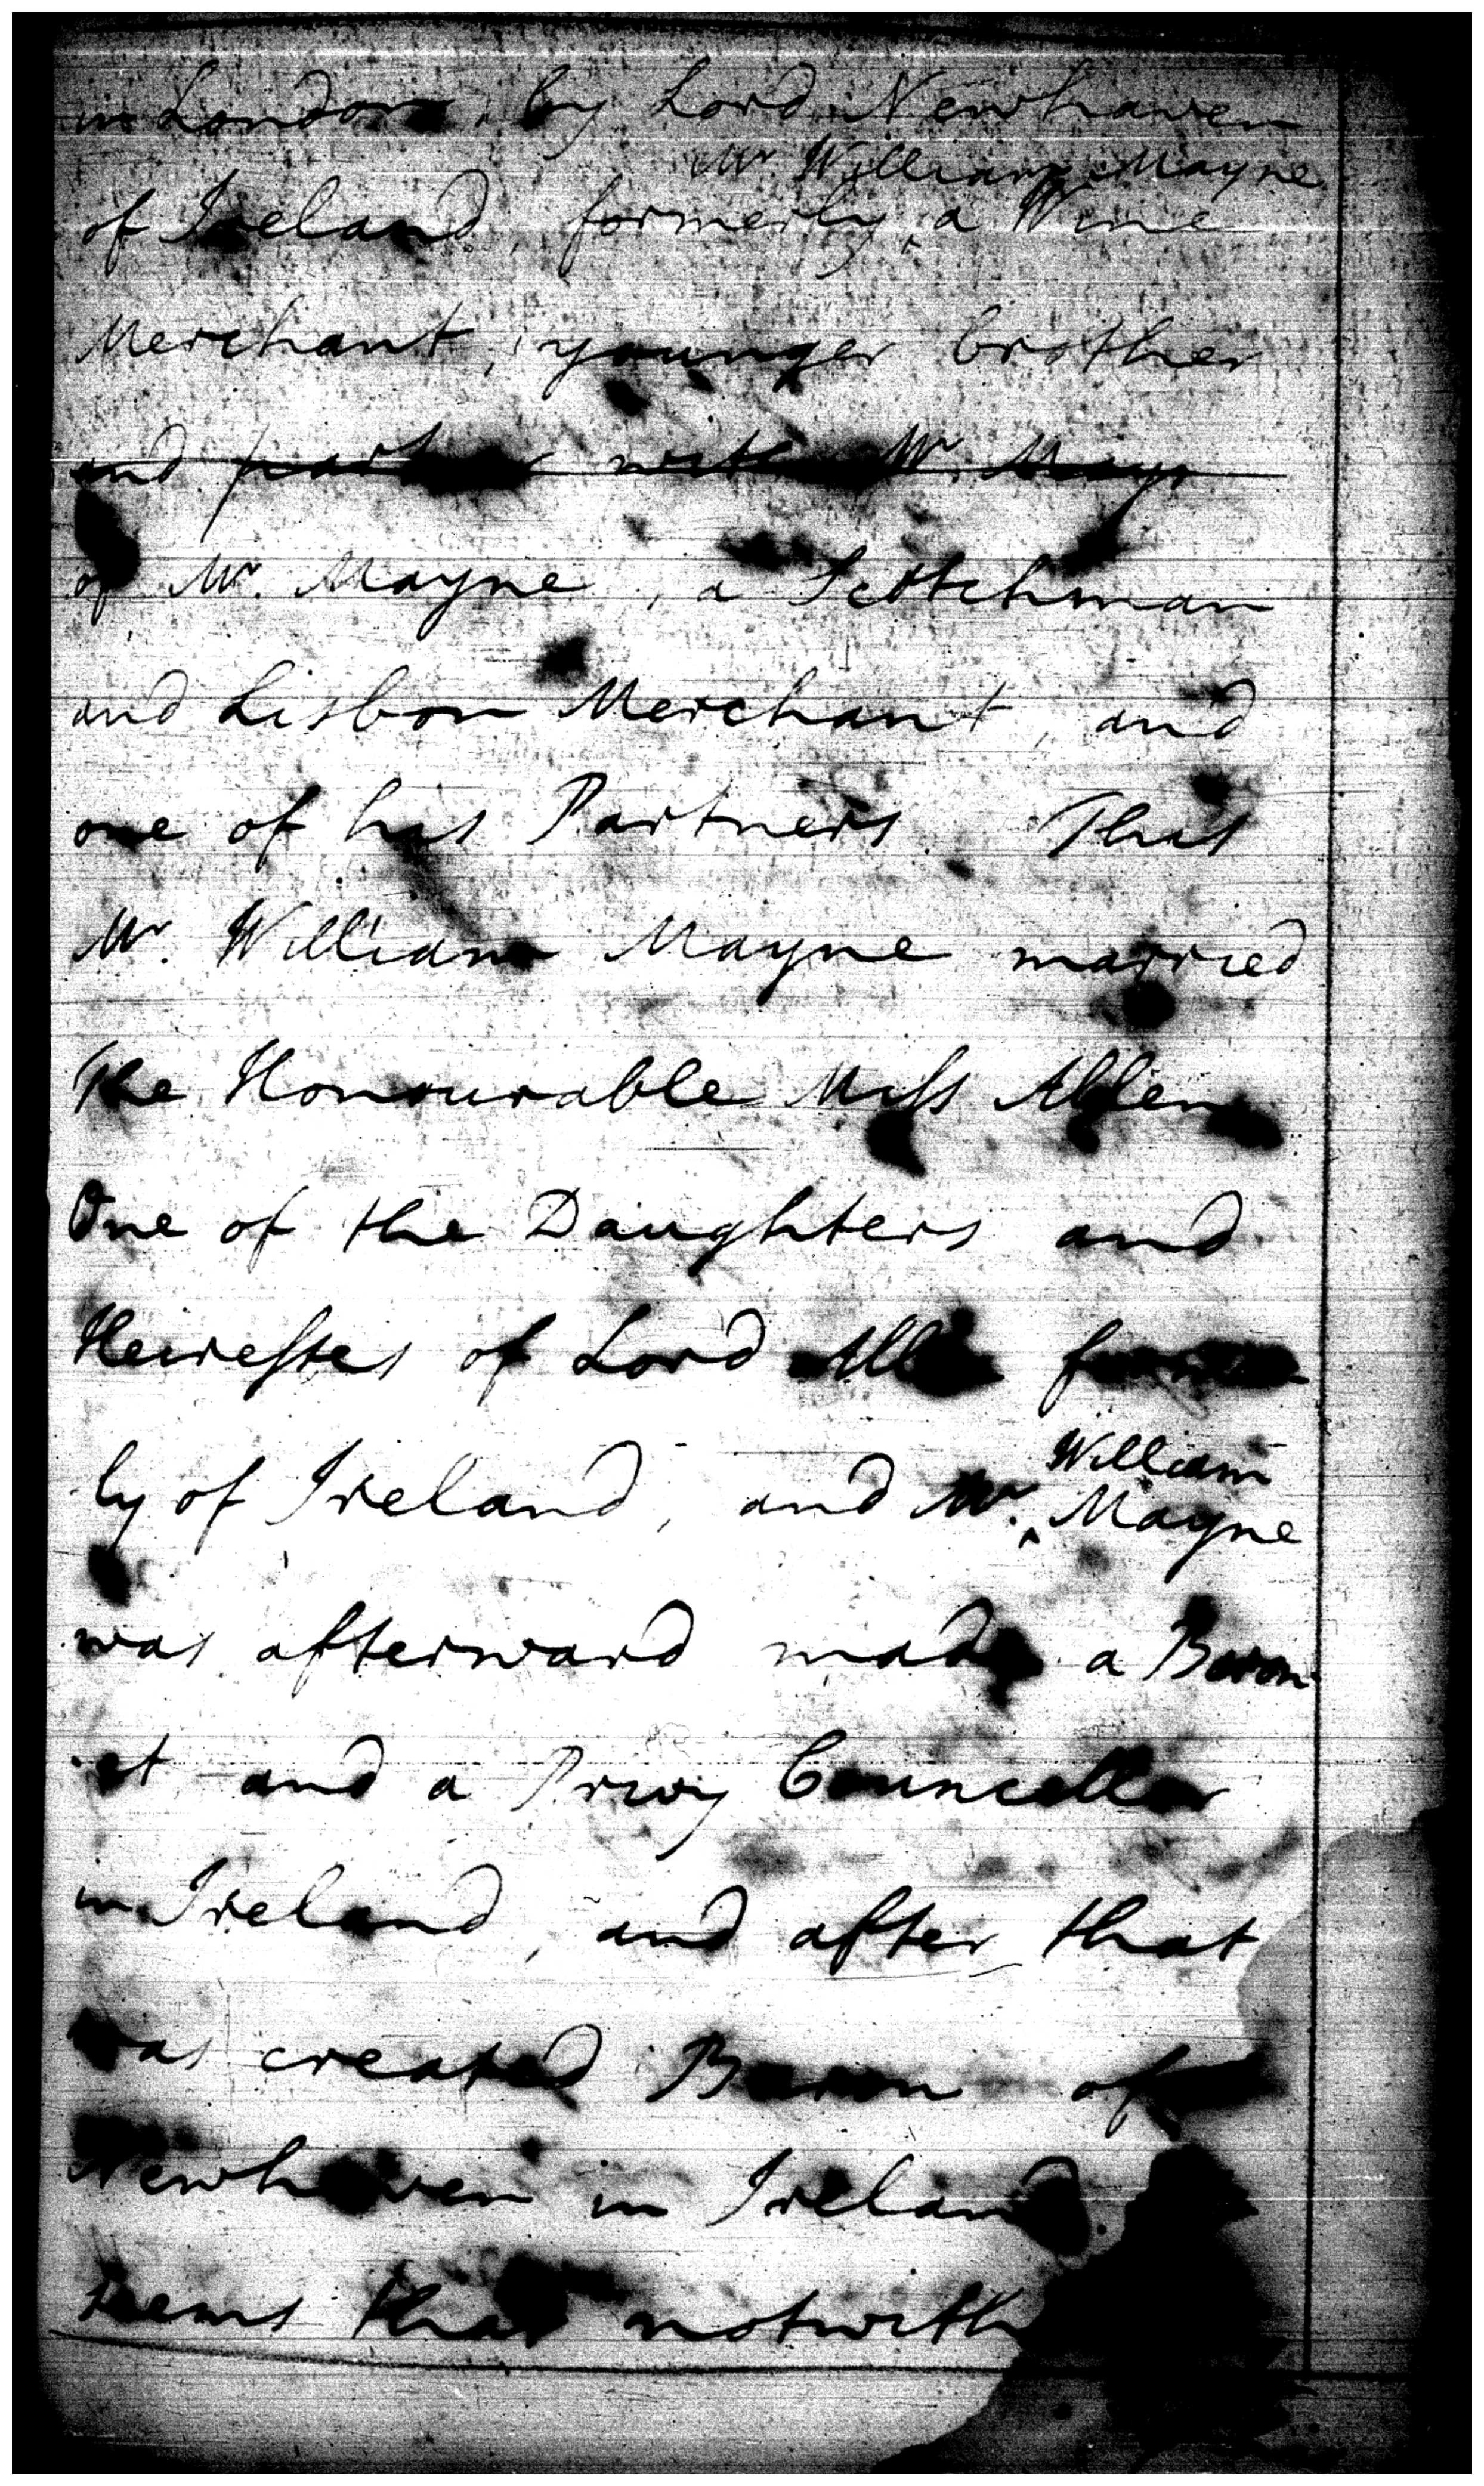 in London, by Lord Newhaven
Mr. William Mayne
of Ireland, formerly a Wine
Merchant, younger brother
and partner with Mr. Mayo
of Mr. Mayne, a Scotchman
and Lisbon Merchant, and
one of his Partners. This
Mr. William Mayne married
The Honourable Miss Allen
One of the Daughters and
Heiresses of Lord Allen former
ly of Ireland, and Mr. Mayne
William
was afterward made a Baron
et and a Privy Councellor
in Ireland, and after that
was created Baron of
Newhaven in Ireland.
seems that notwith